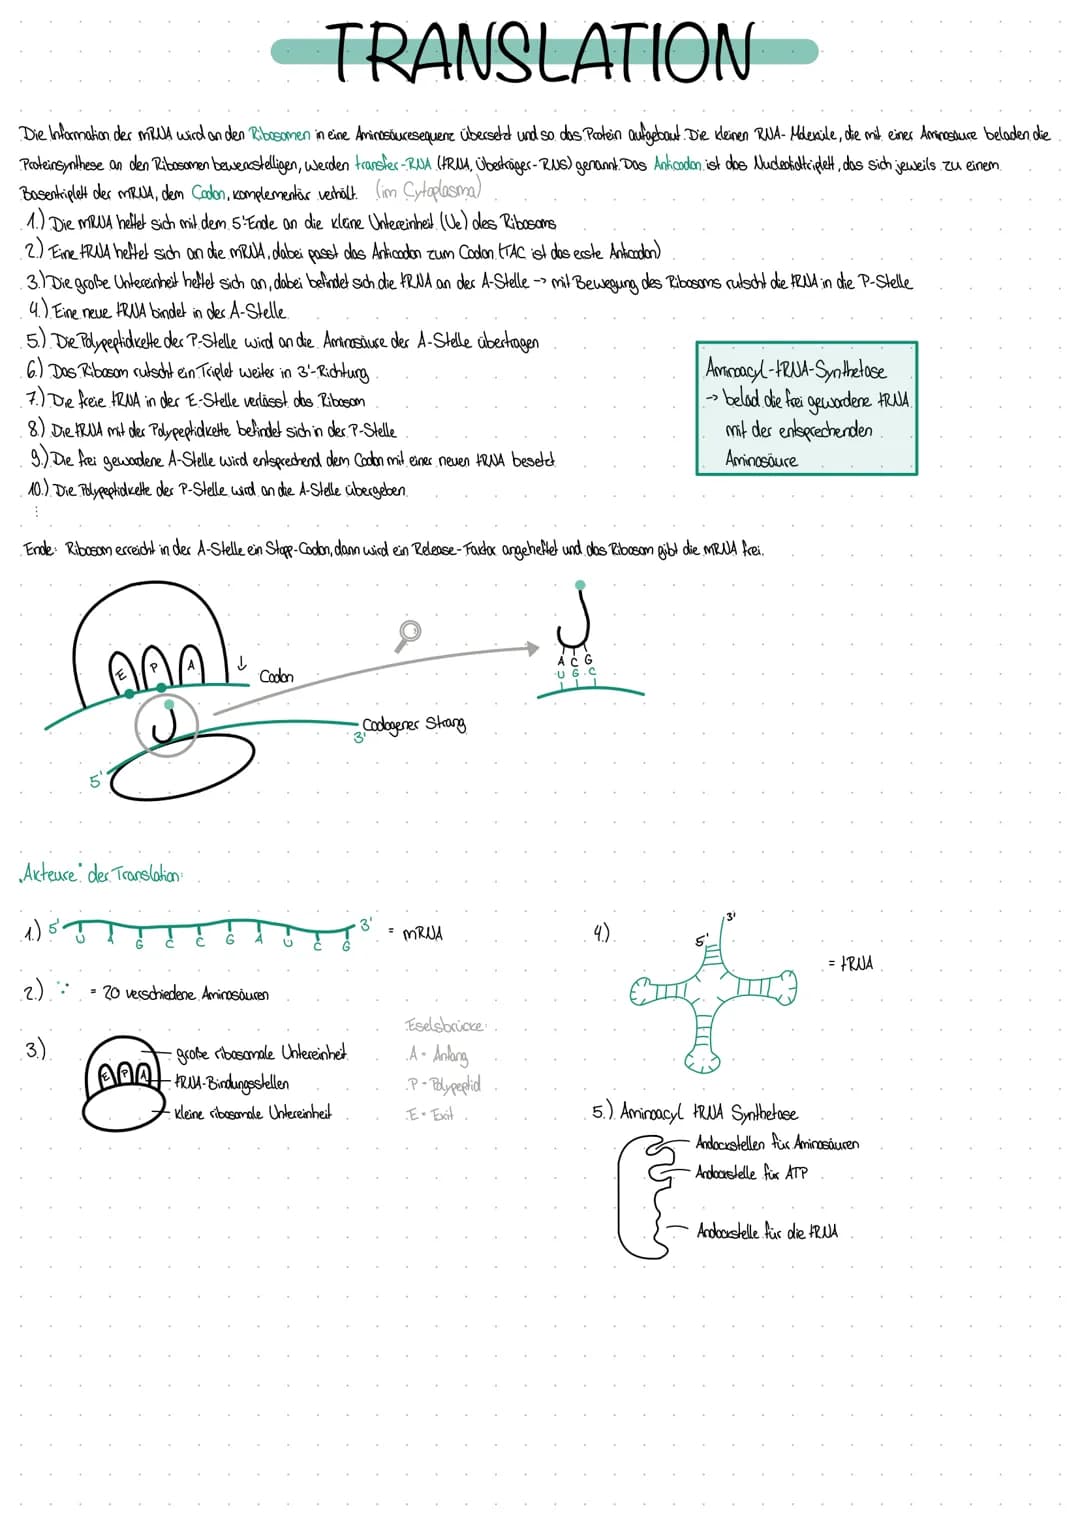 TRANSLATION
Die Information der mRNA wird an den Ribosomen in eine Aminosäuresequenz übersetzt und so das Protein aufgebaut. Die kleinen RNA-Moleküle, die mit einer Aminosäure beladen die
Proteinsynthese an den Ribosomen bewerkstelligen, werden transfer-RNA (tRNA, Überträger-RNS) genannt. Das Anticodon ist das Nucleotidtriplett, das sich jeweils zu einem
Basentriplett der mRNA, dem Codon, komplementär verhält. (im Cytoplasma)
1.) Die mRNA heftet sich mit dem 5'Ende an die kleine Untereinheit (Ue) des Ribosoms
2.) Eine tRNA heftet sich an die mRNA, dabei passt das Anticodon zum Codon (TAC ist das erste Anticodon)
3.) Die große Untereinheit heftet sich an, dabei befindet sich die tRNA an der A-Stelle -> mit Bewegung des Ribosoms rutscht die tRNA in die P-Stelle
4.) Eine neue tRNA bindet in der A-Stelle
5.) Die Polypeptidkette der P-Stelle wird an die Aminosäure der A-Stelle übertragen
6.) Das Ribosom rutscht ein Triplet weiter in 3'-Richtung
7.) Die freie tRNA in der E-Stelle verlässt das Ribosom
8.) Die tRNA mit der Polypeptidkette befindet sich in der P-Stelle
9.) Die frei gewordene A-Stelle wird entsprechend dem Codon mit einer neuen tRNA besetzt
10.) Die Polypeptidkette der P-Stelle wird an die A-Stelle übergeben
⋮
Aminoacyl-tRNA-Synthetase
-> belad die frei gewordene tRNA
mit der entsprechenden
Aminosäure
Ende: Ribosom erreicht in der A-Stelle ein Stopp-Codon, dann wird ein Release-Faktor angeheftet und das Ribosom gibt die mRNA frei.
E P A
Codon
A C G
U G C
Codogener Strang
3'
5'
„Akteure" der Translation:
1.) 5' U A G C C G A U C G 3' = mRNA
2.) = 20 verschiedene Aminosäuren
3.)
E P A
große ribosomale Untereinheit
tRNA-Bindungsstellen
kleine ribosomale Untereinheit
Eselsbrücke:
A - Anfang
P - Polypeptid
E - Exit
4.)
3'
5'
= tRNA
5.) Aminoacyl tRNA Synthetase
Andockstellen für Aminosäuren
Andockstelle für ATP
Andockstelle für die tRNA